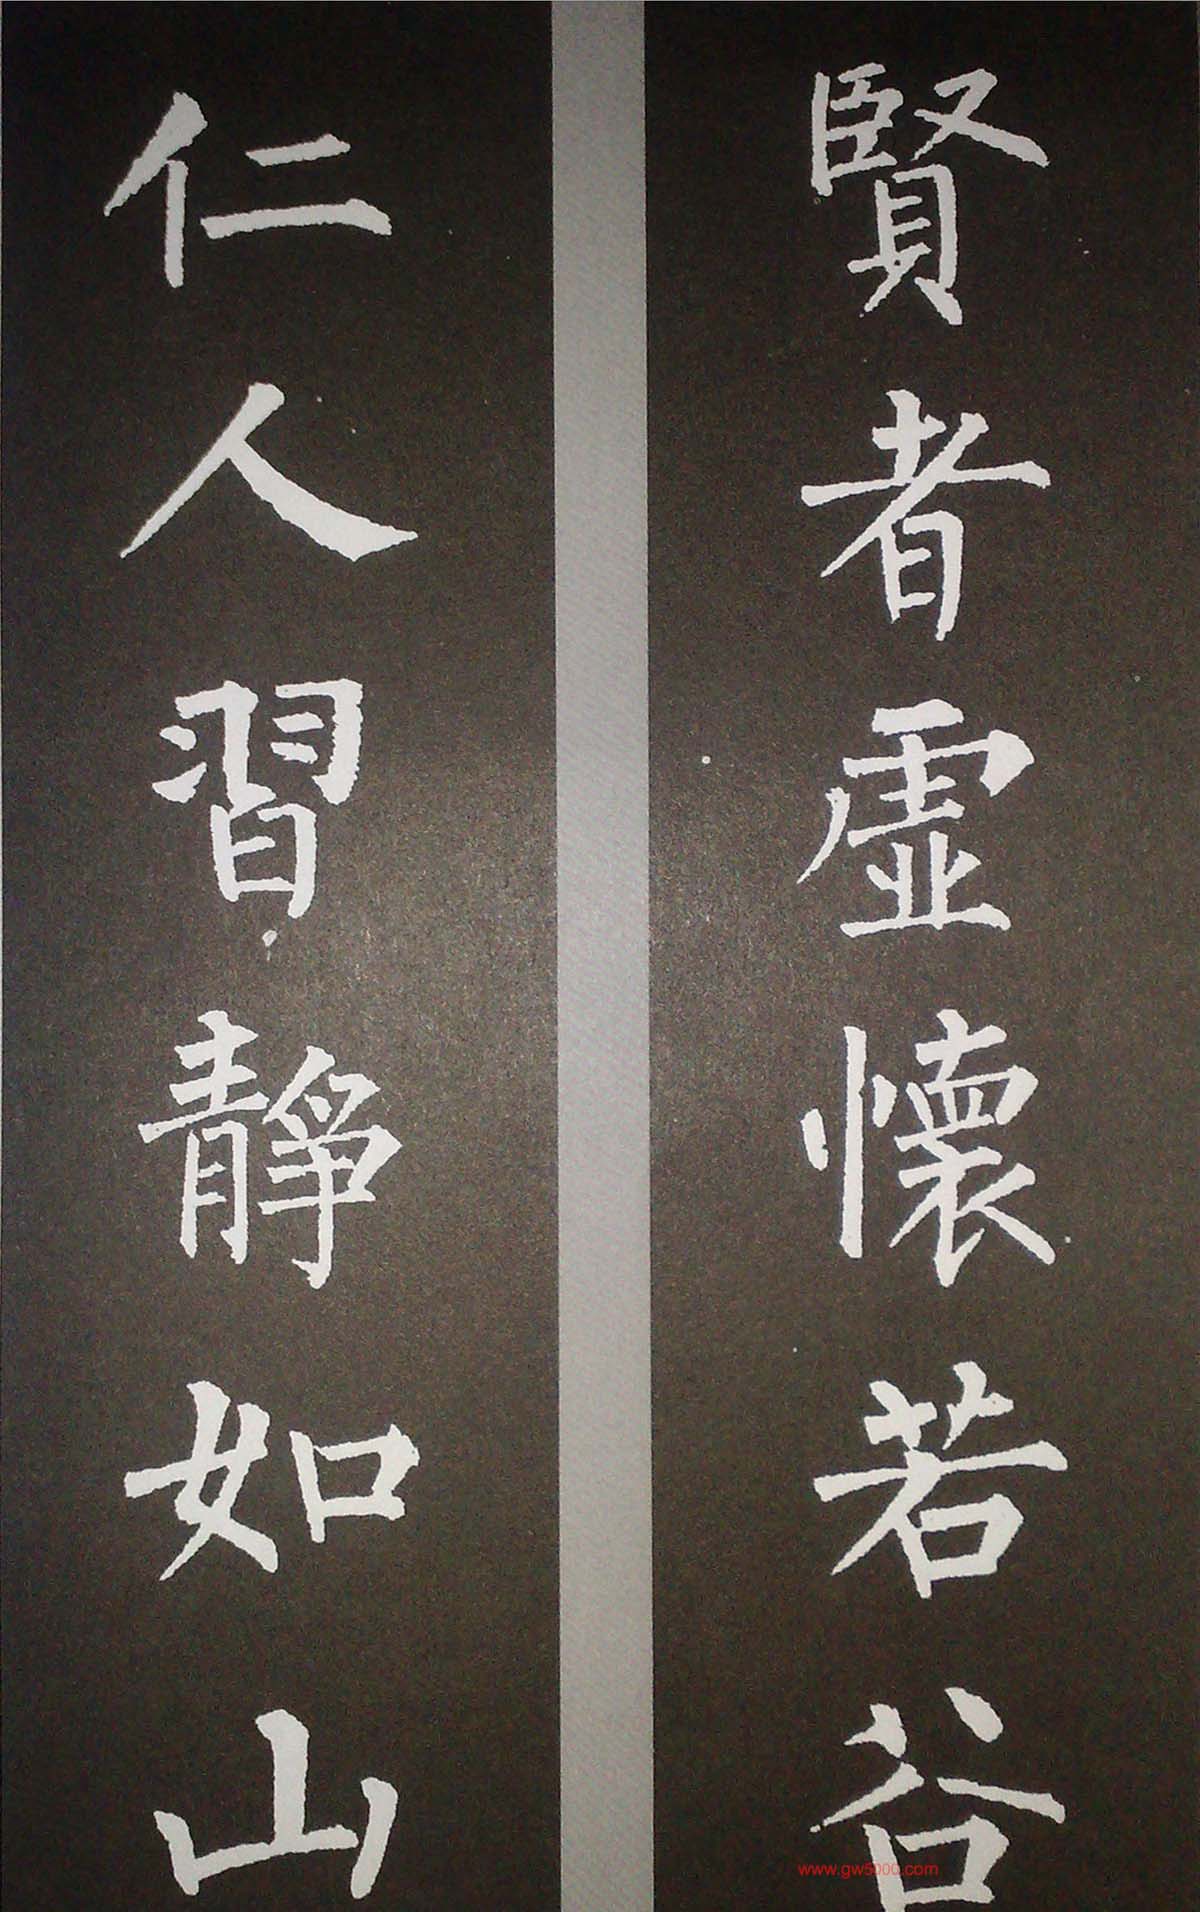 賢者虛懷若谷
仁人習靜如山
www.gw5000.com